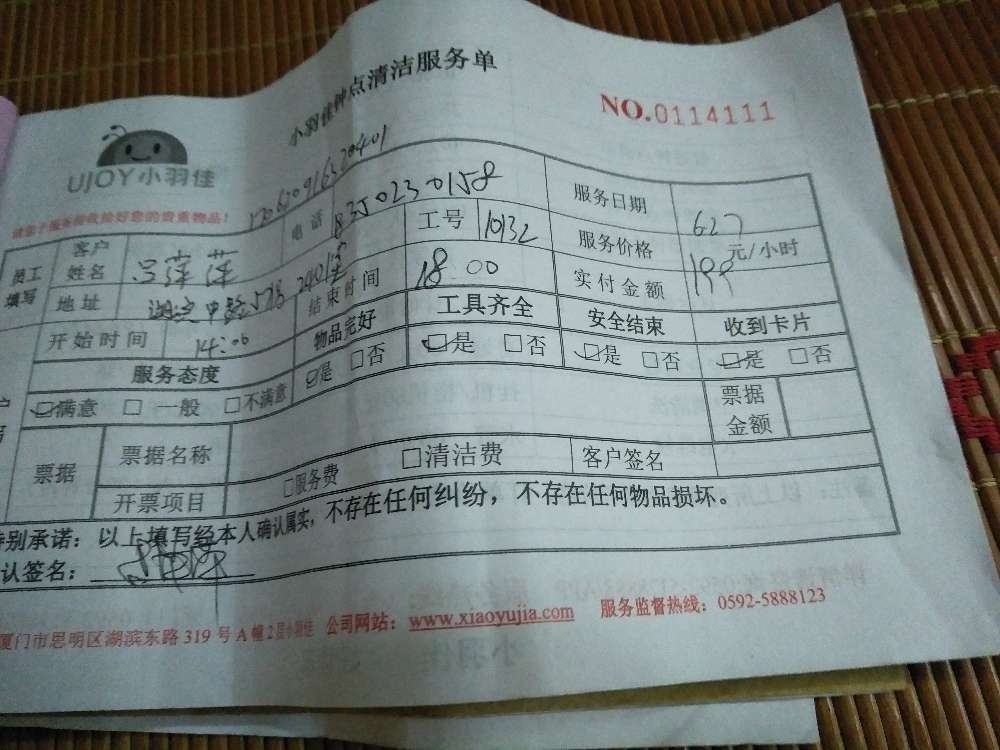 小羽佳钟点清洁服务单
NO.0114111
UJOY小羽佳
请您于服务前收拾好您的贵重物品!
员工填写 客户姓名 吕萍萍 电话 18350230158 服务日期 6.27
地址 湖滨中路 2401室 工号 10132 服务价格 元/小时
开始时间 14:00 结束时间 18:00 实付金额 199
服务态度 物品完好 工具齐全 安全结束 收到卡片
☑满意 □一般 □不满意 ☑是 □否 ☑是 □否 ☑是 □否 ☑是 □否
票据 票据名称 票据金额
开票项目 □服务费 □清洁费 客户签名
别承诺：以上填写经本人确认属实，不存在任何纠纷，不存在任何物品损坏。
认签名：
厦门市思明区湖滨东路319号A幢2层小羽佳 公司网站：www.xiaoyujia.com 服务监督热线：0592-5888123